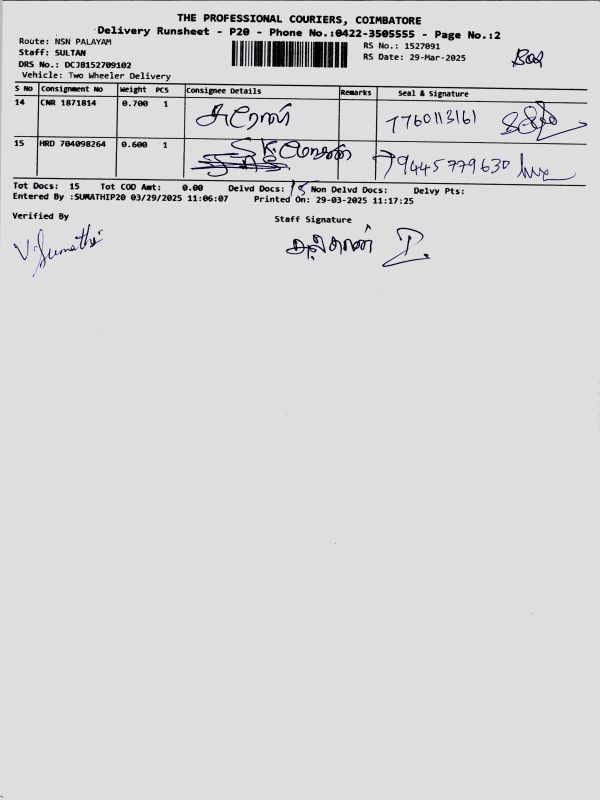 THE PROFESSIONAL COURIERS, COIMBATORE
Delivery Runsheet - P20 - Phone No.:0422-3505555 - Page No.:2
Route: NSN PALAYAM
RS No.: 1527091
Staff: SULTAN
RS Date: 29-Mar-2025
DRS No.: DCJB152709102
Vehicle: Two Wheeler Delivery
S No Consignment No Weight PCS Consignee Details Remarks Seal & Signature
14 CNR 1871814 0.700 1 சுரேஷ் 7760113161
15 HRD 704098264 0.600 1 9445779630
Tot Docs: 15 Tot COD Amt: 0.00 Delvd Docs: 15 Non Delvd Docs: Delvy Pts:
Entered By :SUMATHIP20 03/29/2025 11:06:07 Printed On: 29-03-2025 11:17:25
Verified By
Staff Signature
V. Sumathi